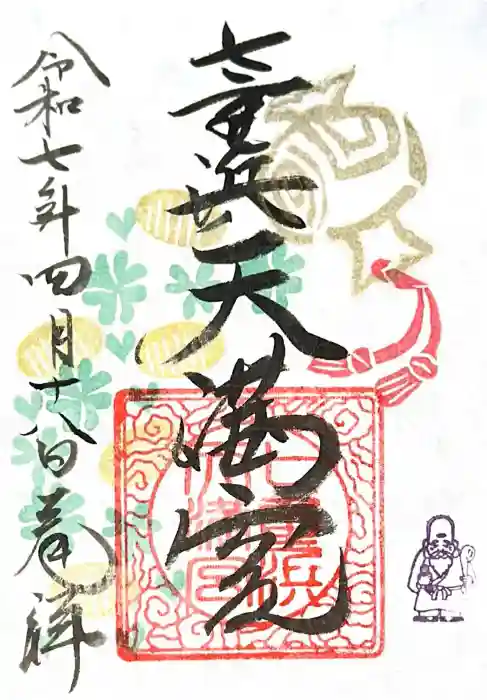 七重浜天満宮
令和七年四月十八日奉拝